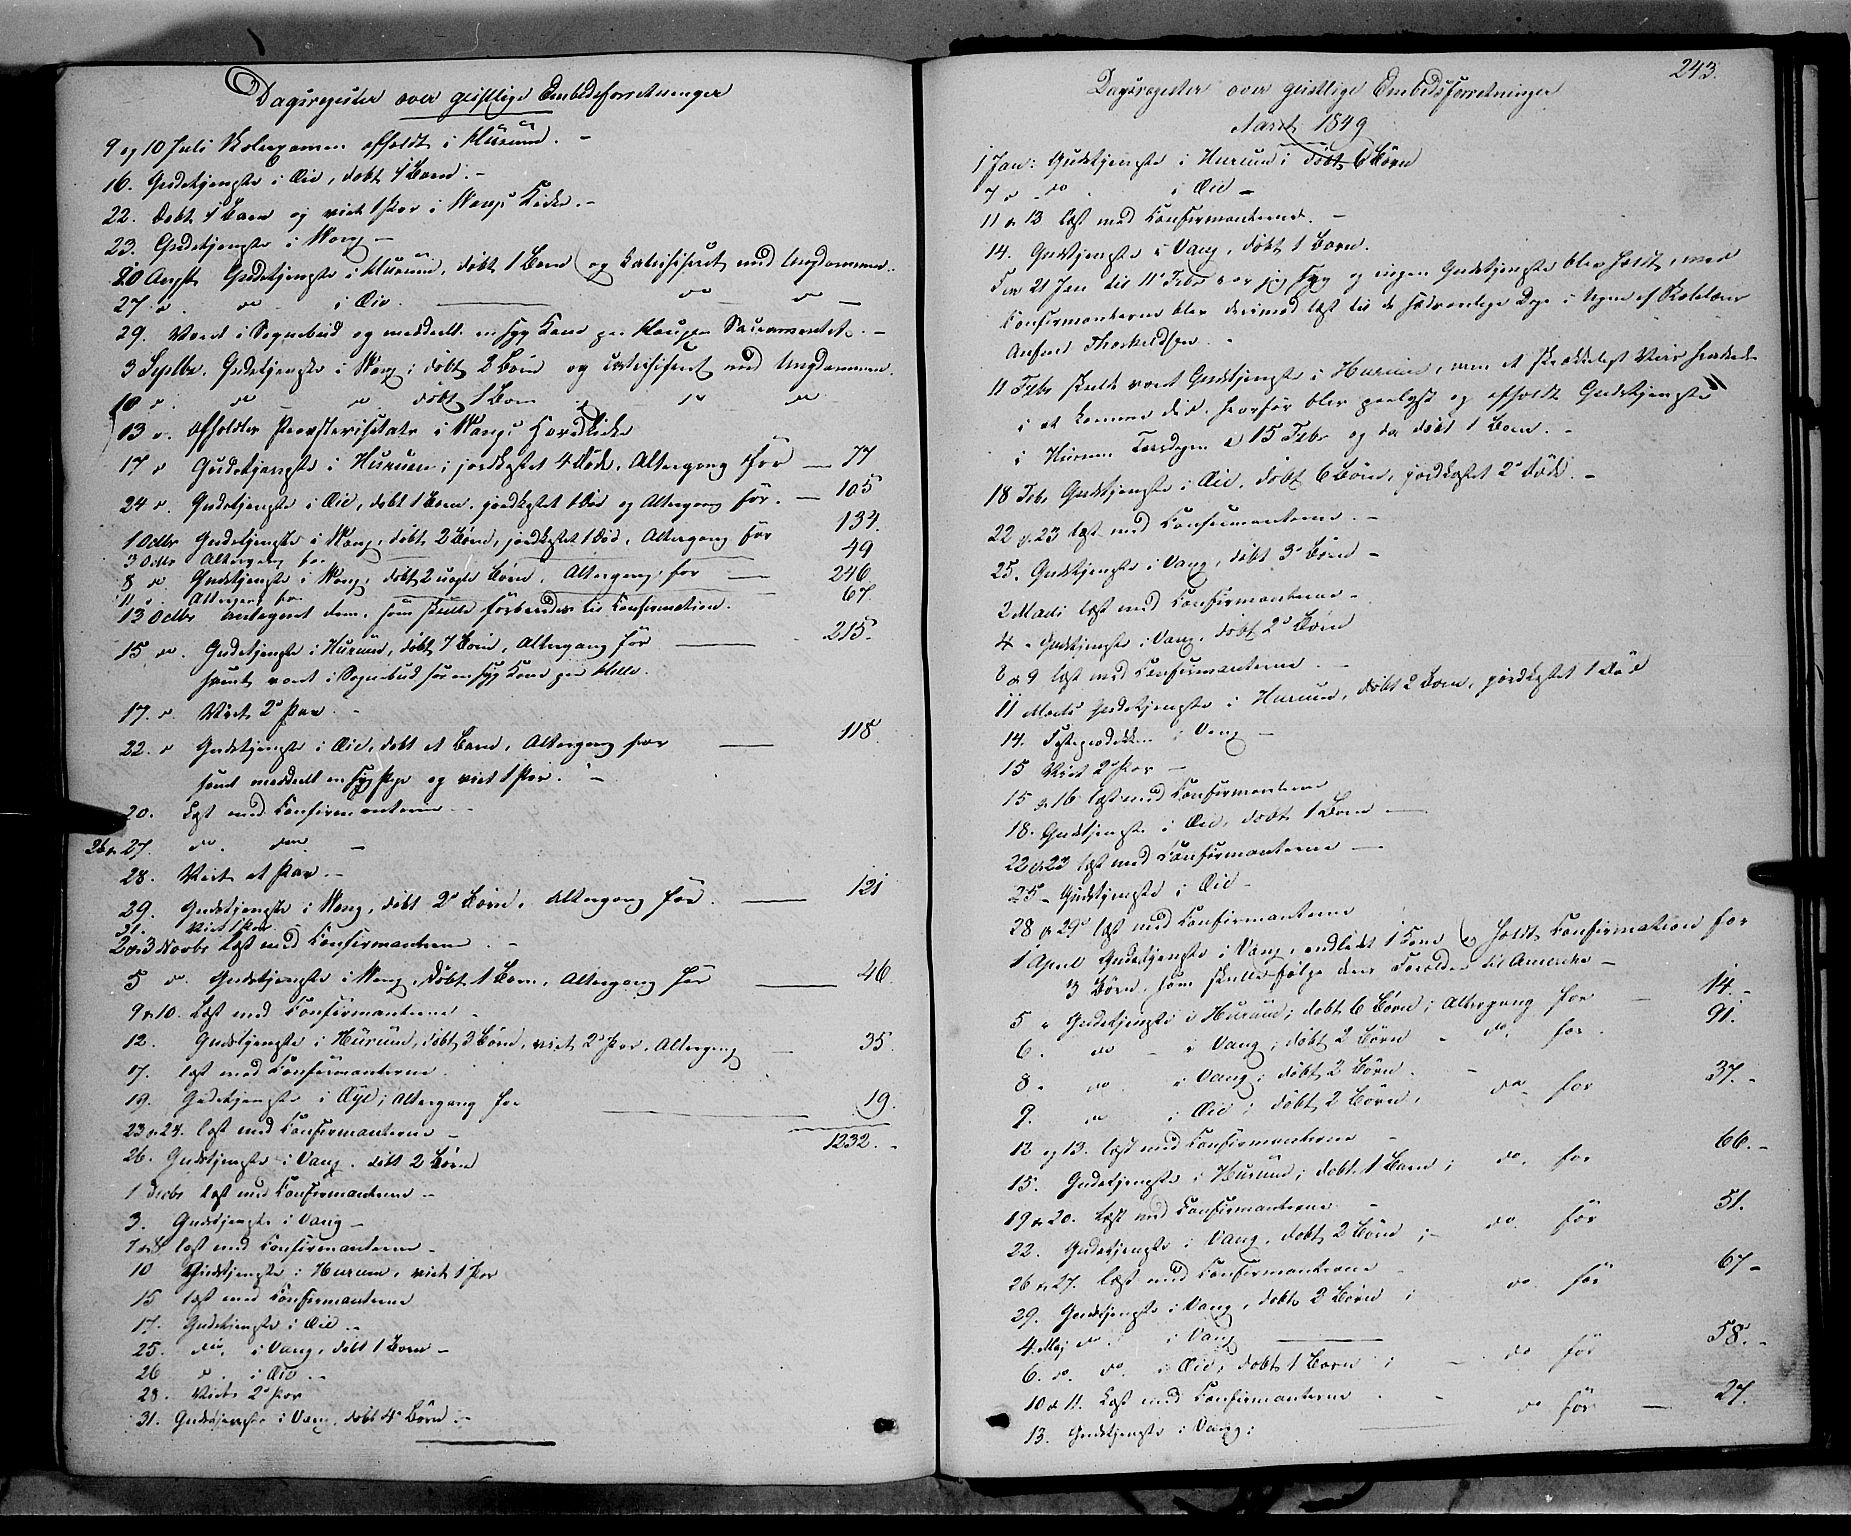 Dagsregister over geistlige Embedsforretninger
9 og 10 Juli Skoleexamen afholdt i Hurum. –
16. Gudstjeneste i Øie, døbt 1 Barn. –
22. Døbt 1 Barn og viet 1 Par i Wangs Kirke. –
23. Gudstjeneste i Wang –
20 Augst Gudstjeneste i Hurum, døbt 1 Barn (og katechiseret med Ungdommen.
27. " do i Øie. do – do –
29. Været i Sognebud og meddeelt en syg Kone paa Sacramentet. –
3 Septbr. Gudstjeneste i Wang; døbt 2 Børn og catechiseret med Ungdommen.
10 " do do døbt 1 Barn do do
13 ". afholdtes Provstevisitats i Wangs Hovedkirke
17 " Gudstjeneste i Hurum; jordkastet 4 døde, Altergang for — 77
24 " Gudstjeneste i Øie, døbt 1 Barn, jordkastet 1 Død og Altergang for. — 105
1 Octbr Gudstjeneste i Wang, døbt 2 Børn, jordkastet 1 død, Altergang for 134.
3 Octbr Altergang for 49
8 " Gudstjeneste i Wang, døbt 2 uægte Børn, Altergang for — 246
11 " Altergang for 67.
13 Octbr antegnet dem, som skulle forberedes til Confirmation.
15 do. Gudstjeneste i Hurum, døbt 7 Børn, Altergang for — 215.
samt været i Sognebud for en syg Kone paa
17. " Viet 2 Par. –
22. " Gudstjeneste i Øie, døbt et Barn, Altergang for — 118.
samt meddeelt en syg Pige og viet 1 Par. –
20. Læst med Confirmanterne –
26 & 27. do. do. –
28. Viet et Par. –
29. Gudstjeneste i Wang, døbt 2 Børn, Altergang for. — 121
31. Viet 1 Par.
2 & 3 Novbr Læst med Confirmanterne. –
5 " Gudstjeneste i Wang, døbt 1 Barn, Altergang for — 46.
9 & 10. Læst med Confirmanterne –
12. Gudstjeneste i Hurum, døbt 3 Børn, viet 2 Par, Altergang – 35.
17. læst med Confirmanterne.
19. Gudstjeneste i Øye; Altergang for — 19.
23 & 24. læst med Confirmanterne –
1232. –
26. Gudstjeneste i Vang. døbt 2 Børn
1 Decbr læst med Confirmanterne –
3. Gudstjeneste i Vang –
7 & 8 læst med Confirmanterne –
10 Gudstjeneste i Hurum, viet 1 Par
15 læst med Confirmanterne
17. Gudstjeneste i Øie –
25. do. i Vang, døbt 1 Barn –
26 " . i Øie. –
28. Viet 2 Par
31. Gudstjeneste i Vang, døbt 4 Børn. –
243.
Dagsregister over geistlige Embedsforretninger
Aaret 1849
1 Jan: Gudstjeneste i Hurum; døbt 6 Børn
7 " do i Øie –
11 & 13 læst med Confirmanterne. –
14. Gudstjeneste i Vang, døbt 1 Barn.
Fra 21 Jan til 11 Febr var jeg syg og ingen Gudstjeneste blev holdt, men
Confirmanterne blev derimod læst til de sædvanlige Dage i Vang af Skolelærer
Thorkildsen. –
11 Febr skulde været Gudstjeneste i Hurum, men et skrækkeligt Veir hindrede
i at komme did, hvorfor blev paalyst og afholdt Gudstjeneste
i Hurum Torsdagen d 15 Febr og da døbt 1 Barn. –
18 Febr Gudstjeneste i Øie, døbt 6 Børn, jordkastet 2 døde. –
22 & 23 læst med Confirmanterne. –
25. Gudstjeneste i Vang, døbt 3 Børn –
2 Marts læst med Confirmanterne –
4 " Gudstjeneste i Vang, døbt 2 Børn
8 & 9 læst med Confirmanterne. –
11 Marts Gudstjeneste i Hurum, døbt 2 Børn, jordkastet 1 død
14. Fasteprædiken i Vang –
15 Viet 2 Par –
15 & 16 læst med Confirmanterne
18. Gudstjeneste i Øie, døbt 1 Barn –
22 & 23 læst med Confirmanterne –
25 – Gudstjeneste i Øie –
28 & 29 læst med Confirmanterne
1 April Gudstjeneste i Vang, indledt 1 Kone (og holdt Confirmation for
3 Børn, som skulle følge deres Forældre til Amerika –
5 " Gudstjeneste i Hurum; døbt 6 Børn; Altergang for – 14. –
6. do – i Vang; døbt 2 Børn – do. for. 91.
8 " do. i Vang; døbt 2 Børn. –
9. do i Øie; døbt 2 Børn, do for 37. –
12 og 13. læst med Confirmanterne –
15. Gudstjeneste i Hurum; døbt 1 Barn; do. for 66. –
19 & 20. læst med Confirmanterne –
22. Gudstjeneste i Vang, døbt 2 Børn ;– do. for 51.
26 & 27. læst med Confirmanterne –
29. Gudstjeneste i Vang, døbt 2 Børn ; do. for 67 –
4. Maj do. i Vang —
6. do. do. i Øie, døbt 1 Barn ; – do for 58. –
10 & 11. Læst med Confirmanterne. –
13. Gudstjeneste i Vang; do for — 27.